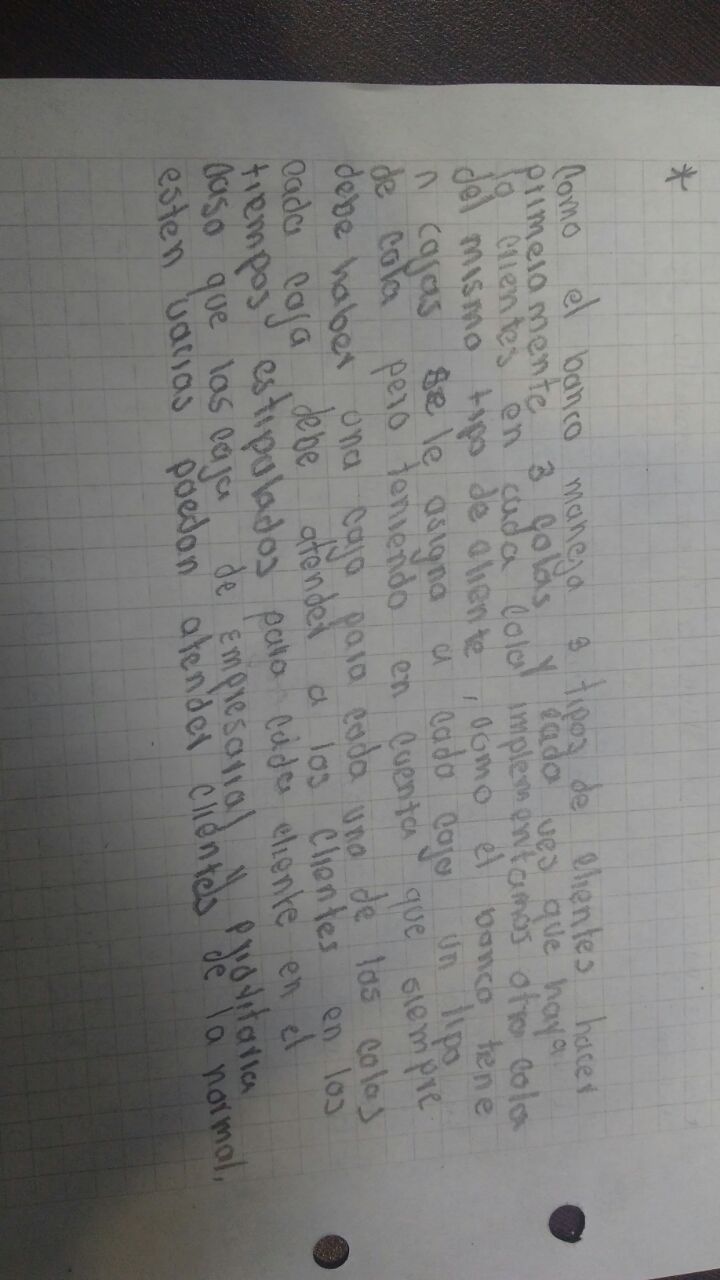 *
Como el banco maneja 3 tipos de clientes hacer
primeramente 3 colas y cada ves que haya
10 clientes en cada cola implementamos otra cola
del mismo tipo de cliente, como el banco tene
n cajas se le asigna a cada caja un tipo
de cola pero teniendo en cuenta que siempre
debe haber una caja para cada una de las colas
cada caja debe atender a los clientes en los
tiempos estipulados para cada cliente en el
caso que las caja de empresarial y prioritaria
esten vacias puedan atender clientes de la normal,